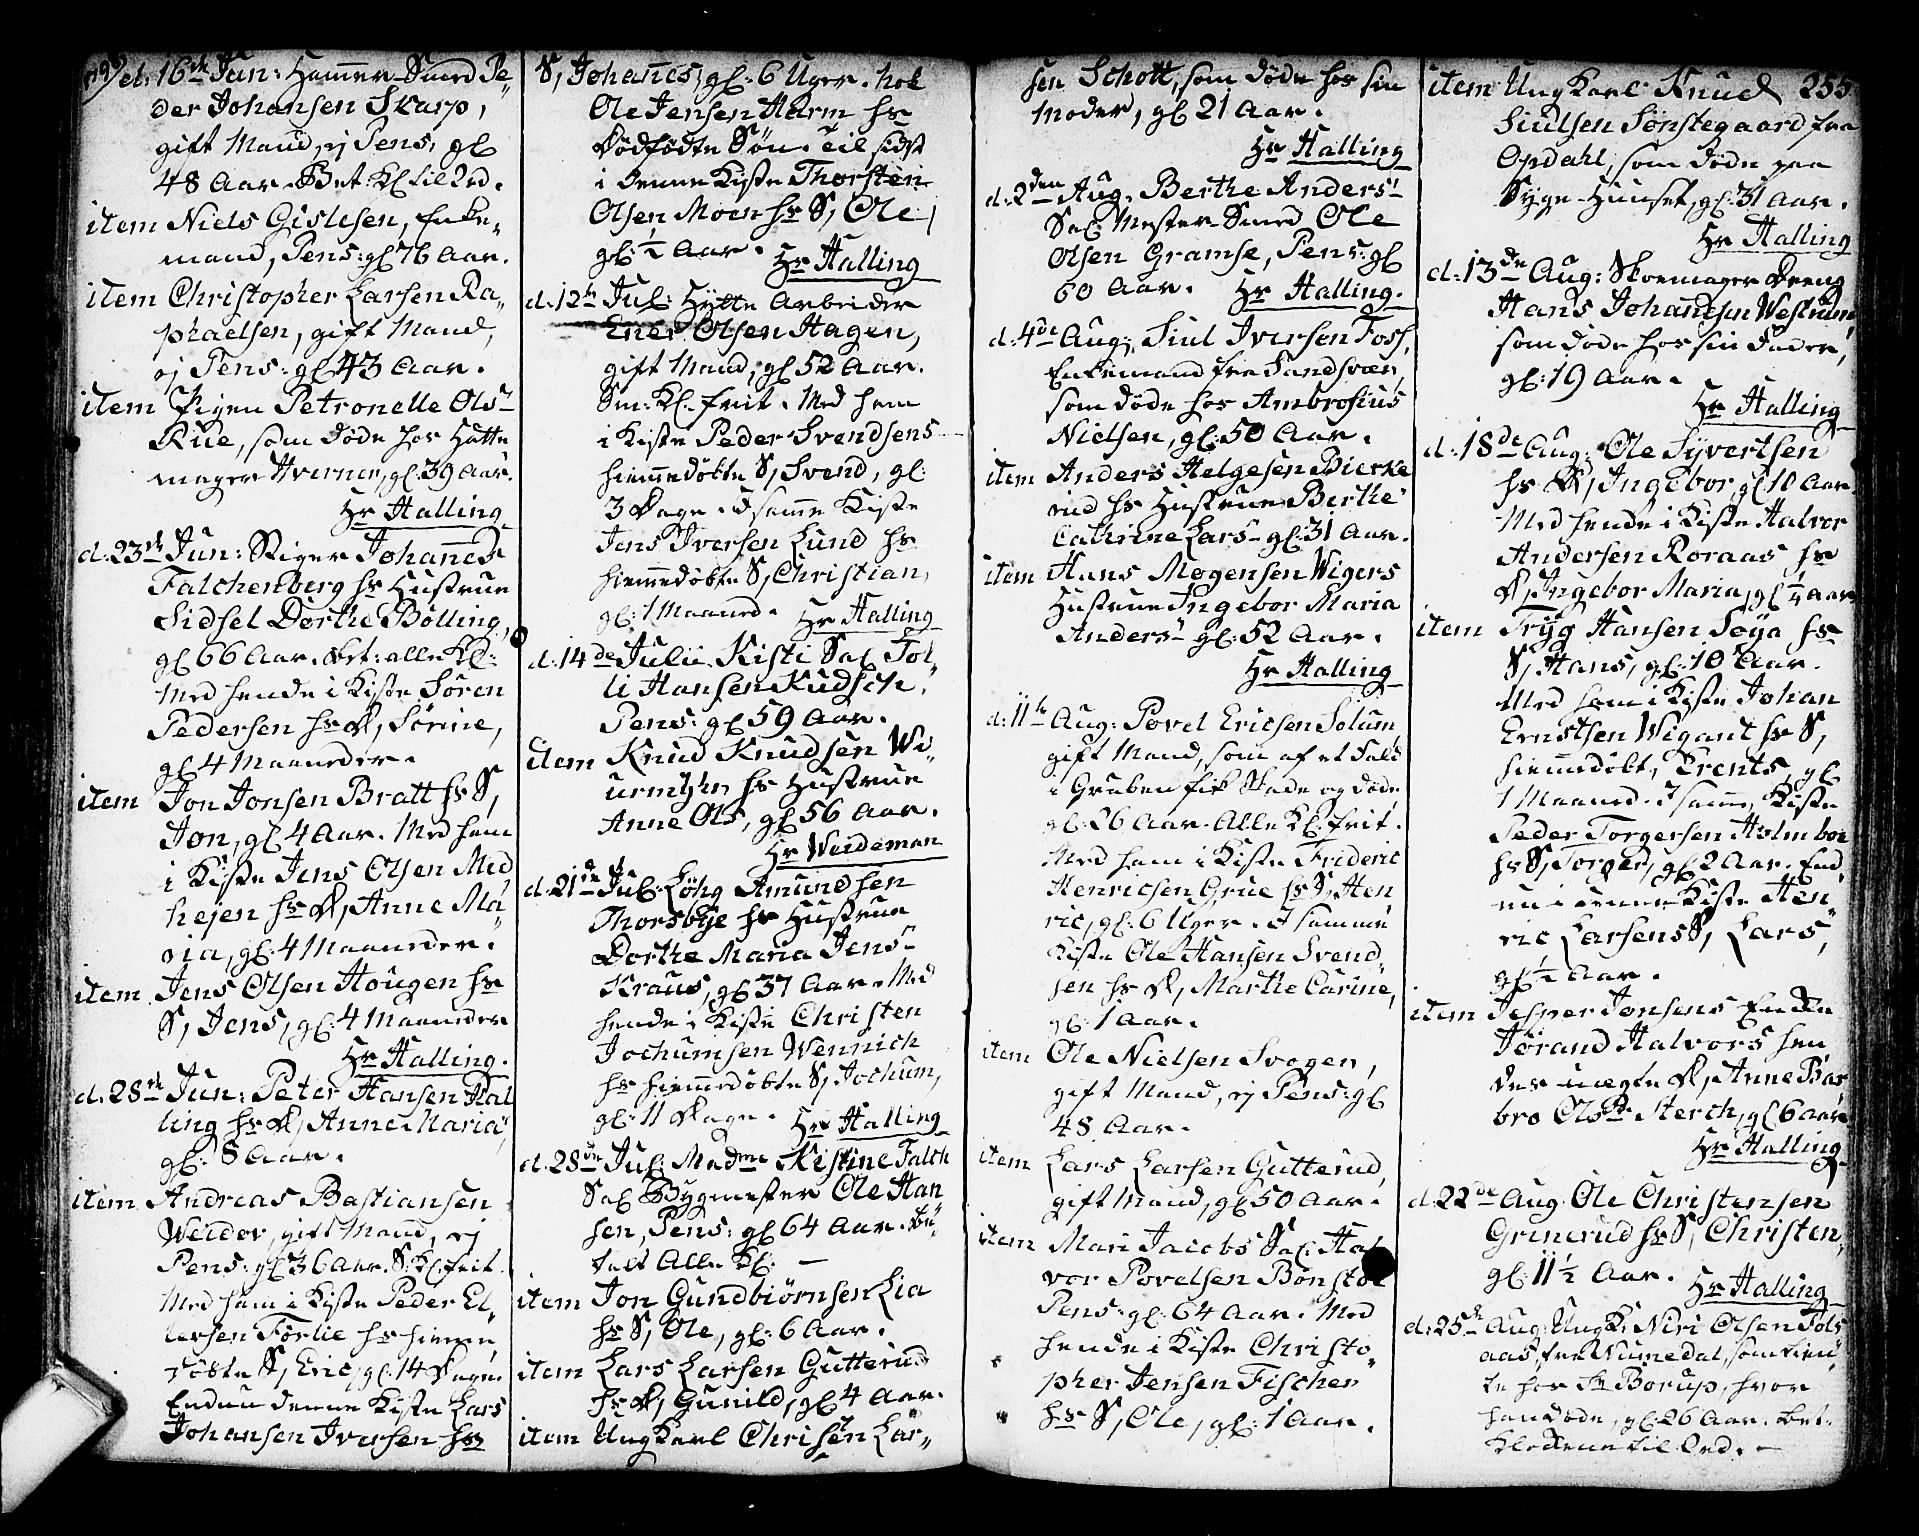 d: 16de Jun: Hamer-Smed Pe-
der Johansen Skarp,
gift Mand, ej Pens: gl
48 Aar. Bet: Kl til Ord.
item Niels Gislesen, Enke-
mand, Pens: gl 76 Aar.
item Christopher Larsen Ra-
phaelsen, gift Mand,
ej Pens: gl 43 Aar.
item Pigen Petronelle Ols-
Rue, som døde hos Hatte
mager Hverner, gl: 39 Aar.
Hr Halling
d: 23de Jun: Stiger Johannes
Falchenberg hs Hustrue
Sidsel Dorthe Bølling,
gl 66 Aar. Bet: alle Kl:
Med hende i Kiste Søren
Pedersen hs D, Sørine,
gl 4 Maaneder.
item Jon Jonsen Bratt hs S,
Jon, gl 4 Aar. Med ham
i Kiste Jens Olsen Med
hejen hs D, Anne Ma-
ria, gl: 4 Maaneder.
item Jens Olsen Hougen hs
S, Jens, gl: 4 Maaneder
Hr Halling.
d: 28de Jun: Peter Hansen Hal
ling hs D, Anne Maria,
gl: 8 Aar.
item Andreas Bastiansen
Weider, gift Mand, ej
Pens: gl 36 Aar. S: Kl: frit.
Med ham i Kiste Peder El-
lersen Førlie hs hieme-
døbte S, Eric, gl: 14 Dage.
Endnu i denne Kiste Lars
Johansen Iversen hs
S, Johanes, gl: 6 Uger. Nok
Ole Jensen Harm hs
Dødfødte Søn. Til sidst
i denne Kiste Thorsten
Olsen Moen hs S, Ole,
gl: ½ Aar. Hr Halling
d: 12te Jul: Hytte Arbeider
Ener Olsen Hagen,
gift Mand, gl 52 Aar.
Sm: Kl: frit. Med ham
i Kiste Peder Svendsens
hiemmedøbte S, Svend, gl:
3 Dage. I samme Kiste
Jens Iversen Lund hs
hiemmedøbte S, Christian,
gl: 1 Maaned. Hr Halling
d: 14de Julii Kisti Sal Tol-
li Hansen Kudsch,
Pens: gl 59 Aar.
item Knud Knudsen Wi-
urmyhr hs Hustrue
Anne Ols, gl 56 Aar.
Hr Weideman
d. 21de Jul: Løhg Amundsen
Thorsbye hs Hustrue
Dorthe Maria Jens-
Kraus, gl 37 Aar. Med
hende i Kiste Christen
Jochumsen Wennich
hs hiemmedøbte S, Jochum,
gl: 11 Dage. Hr Halling
d. 28de Jul: Madme Kistine Falch
Sal Bygmester Ole Han
sen, Pens: gl 64 Aar. Be-
talt Alle Kl: —
item Jon Gundbiørnsen Lia
hs S, Ole, gl: 6 Aar.
item Lars Larsen Gutterud
hs D, Gunild, gl 4 Aar.
item Ung Karl Christen Lar-
sen Schott, som døde hos sin
Moder, gl 21 Aar.
Hr Halling
d: 2den Aug: Berthe Anders-
Sal: Mester-Smed Ole
Olsen Gramse, Pens: gl
60 Aar. Hr Halling.
d: 4de Aug: Siul Iversen Foss,
Enkemand fra Sandsvær,
som døde hos Ambrosius
Nielsen, gl: 50 Aar.
item Anders Helgesen Bierke
rud hs Hustrue Berthe
Cathrine Lars- gl: 31 Aar.
item Hans Mogensen Wigers
Hustrue Ingebor Maria
Anders- gl: 52 Aar.
Hr Halling
d: 11te Aug: Povel Ericsen Solum,
gift Mand, som af et Fald
i Gruben fik Skade og døde
gl: 26 Aar. Alle Kl: frit.
Med ham i Kiste Frideric
Henricsen Grue hs S, Hen
ric, gl: 6 Uger. I samme
Kiste Ole Hansen Svend-
sen hs D, Marthe Carine,
gl: 1 Aar.
item Ole Nielsen Svogen,
gift Mand, ej Pens: gl
48 Aar.
item Lars Larsen Gutterud,
gift Mand, gl 50 Aar.
item Mari Jacobs Sal: Hal
vor Povelsen Bønstøl
Pens: gl: 64 Aar. Med
hende i Kiste Christo-
pher Jensen Fischer
hs S, Ole, gl: 1 Aar.
255
item Ung Karl Knud
Siulsen Sønstegaard fra
Opdahl, som døde paa
Syge-Huuset, gl: 31 Aar.
Hr Halling
d: 13de Aug: Skoemager Dreng
Hans Johansen Westrum,
som døde hos sin Fader,
gl: 19 Aar.
Hr Halling
d. 18de Aug: Ole Syvertsen
hs D, Ingebor, gl 10 Aar.
Med hende i Kiste Halvor
Andersen Roraas hs
D, Ingebor Maria, gl ¼ Aar
item Tryg Hansen Søya hs
S, Hans, gl: 10 Aar.
Med ham i Kiste Johan
Ernstsen Wigant hs S,
hiemedøbt, Brents, gl
1 Maaned. I samme Kiste
Peder Torgersen Holmboe
hs S, Torger, gl 2 Aar. End
nu i denne Kiste Hen-
ric Larsens S, Lars,
gl ½ Aar.
item Jesper Jonsens Enke
Jørand Halvors hen
des uægte D, Anne Bar
bro Olsdr Sterch, gl 6 Aar
Hr Halling
d: 22de Aug Ole Christensen
Grinerud hs S, Christen,
gl: 11½ Aar. Hr Halling
d: 25de Aug: Ung K: Niri Olsen Fols
aas, fra Numedal, som tien-
te hos Hr Borup, hvor
han døde, gl: 26 Aar. Bet:
Klokkene til Ord. —